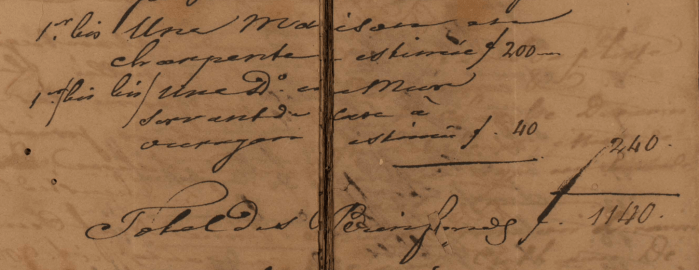 1.er bis Une Maison en
charpente estimée f 200
1.er/bis bis/ Une D.o en Mur
servant de Case à
ouragan estimée f. 40
240.
Total des Biens fonds f. 1140.